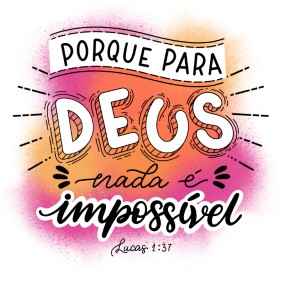 PORQUE PARA
DEUS
nada é
impossível
Lucas 1:37